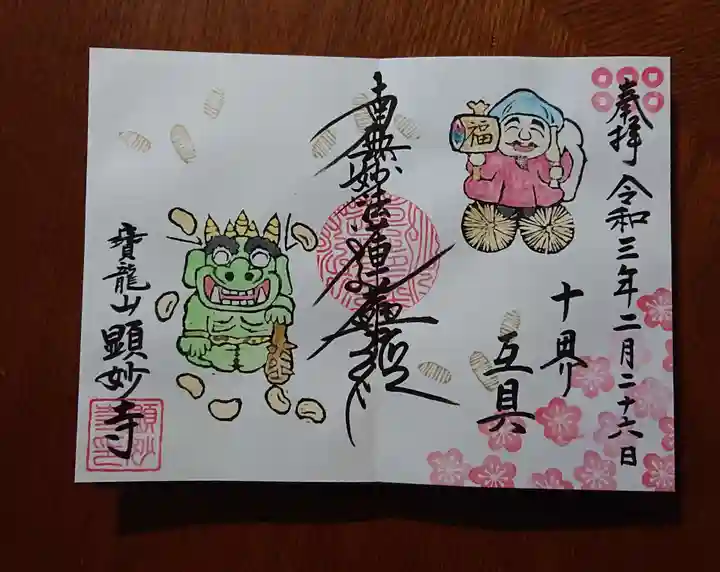 奉拝
令和三年二月二十六日
十界
互具
福
南無妙法蓮華経
寳龍山
顕妙寺